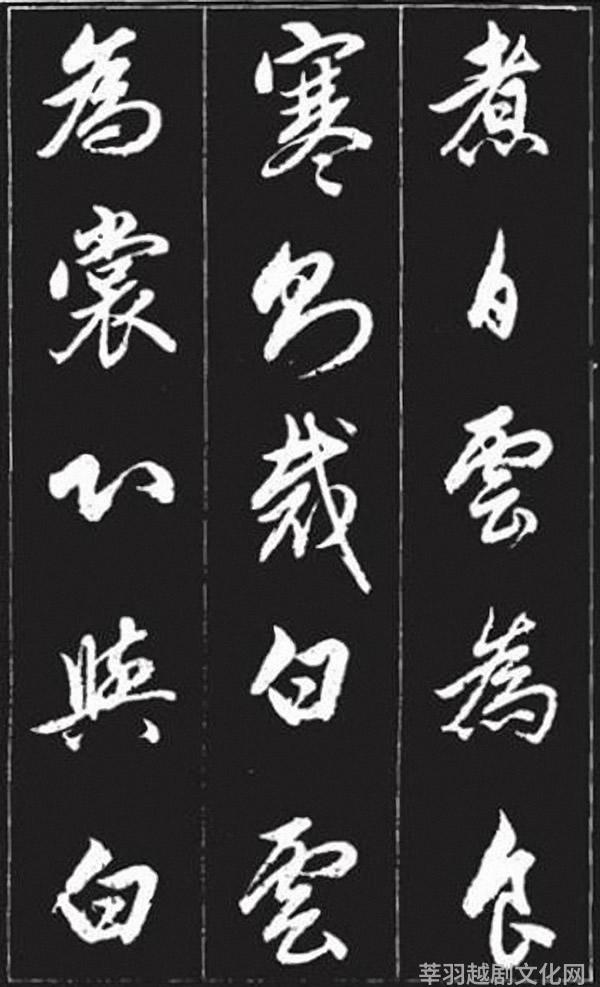 煮白雲為食
寒則裁白雲
為裳以與白
莘羽越剧文化网